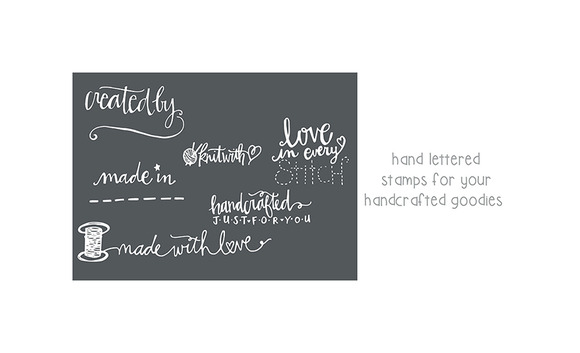 created by
knit with
love
in every
stitch
made in
handcrafted
J·U·S·T·F·O·R·Y·O·U
made with love
hand lettered
stamps for your
handcrafted goodies